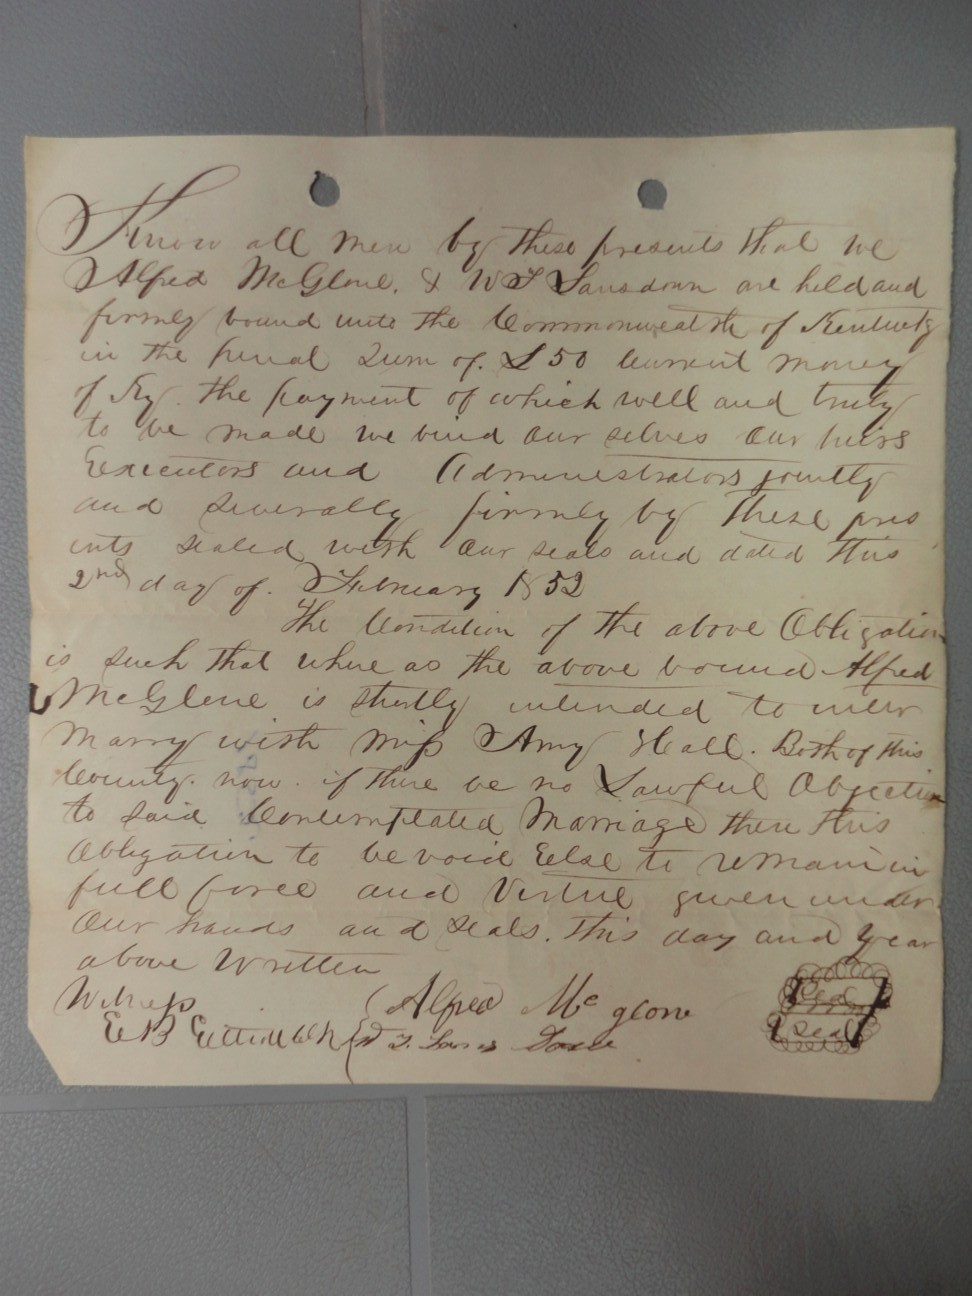 Know all men by these presents that we
Alfred McGlone, & W T Lansdown are held and
firmly bound unto the Commonwealth of Kentucky
in the penal Sum of. £50 current money
of Ky. the payment of which well and truly
to be made we bind our selves our heirs
Executors and Administrators jointly
and severally firmly by these pres
ents sealed with our seals and dated this
2nd day of. February 1852
The Condition of the above Obligation
is such that where as the above bound Alfred
McGlone is shortly intended to inter
Marry with Miss Amy Hall. Both of this
County. now. if there be no Lawful Objection
to said Contemplated Marriage then this
Obligation to be void Else to remain in
full force and Virtue given under
our hands and seals. this day and Year
above Written
Witness Alfred Mc glone Seal
E B W T Seal